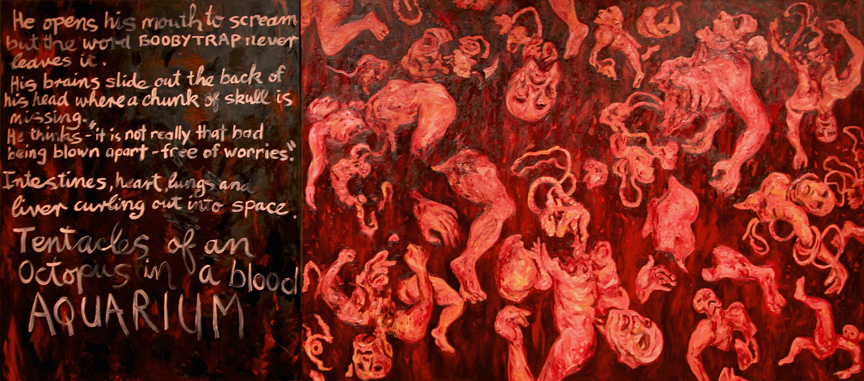 He opens his mouth to scream
but the word BOOBYTRAP never
leaves it.
His brains slide out the back of
his head where a chunk of skull is
missing.
He thinks - "it is not really that bad
being blown apart - free of worries".
Intestines, heart, lungs and
liver curling out into space.
Tentacles of an
Octopus in a blood
AQUARIUM